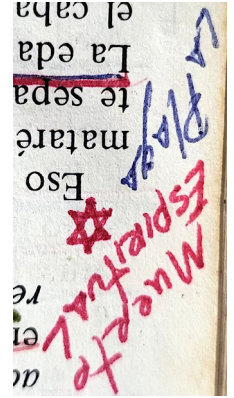 en
re
Eso
mataré
te sepa
La eda
el caba
Muerte
Espiritual